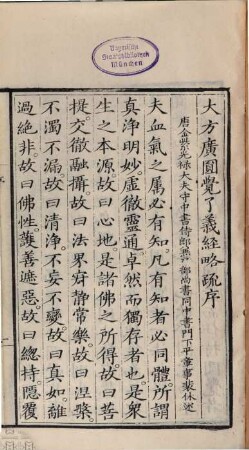 Bayerische
Staatsbibliothek
München
大方廣圓覺了義經略疏序
唐金紫光祿大夫守中書侍郎兼戶部尚書同中書門下平章事裴休述
夫血氣之屬必有知凡有知者必同體所謂
真淨明妙虛徹靈通卓然而獨存者也是衆
生之本源故曰心地是諸佛之所得故曰菩
提交徹融攝故曰法界寂靜常樂故曰涅槃
不濁不漏故曰清淨不妄不變故曰真如離
過絕非故曰佛性護善遮惡故曰總持隱覆